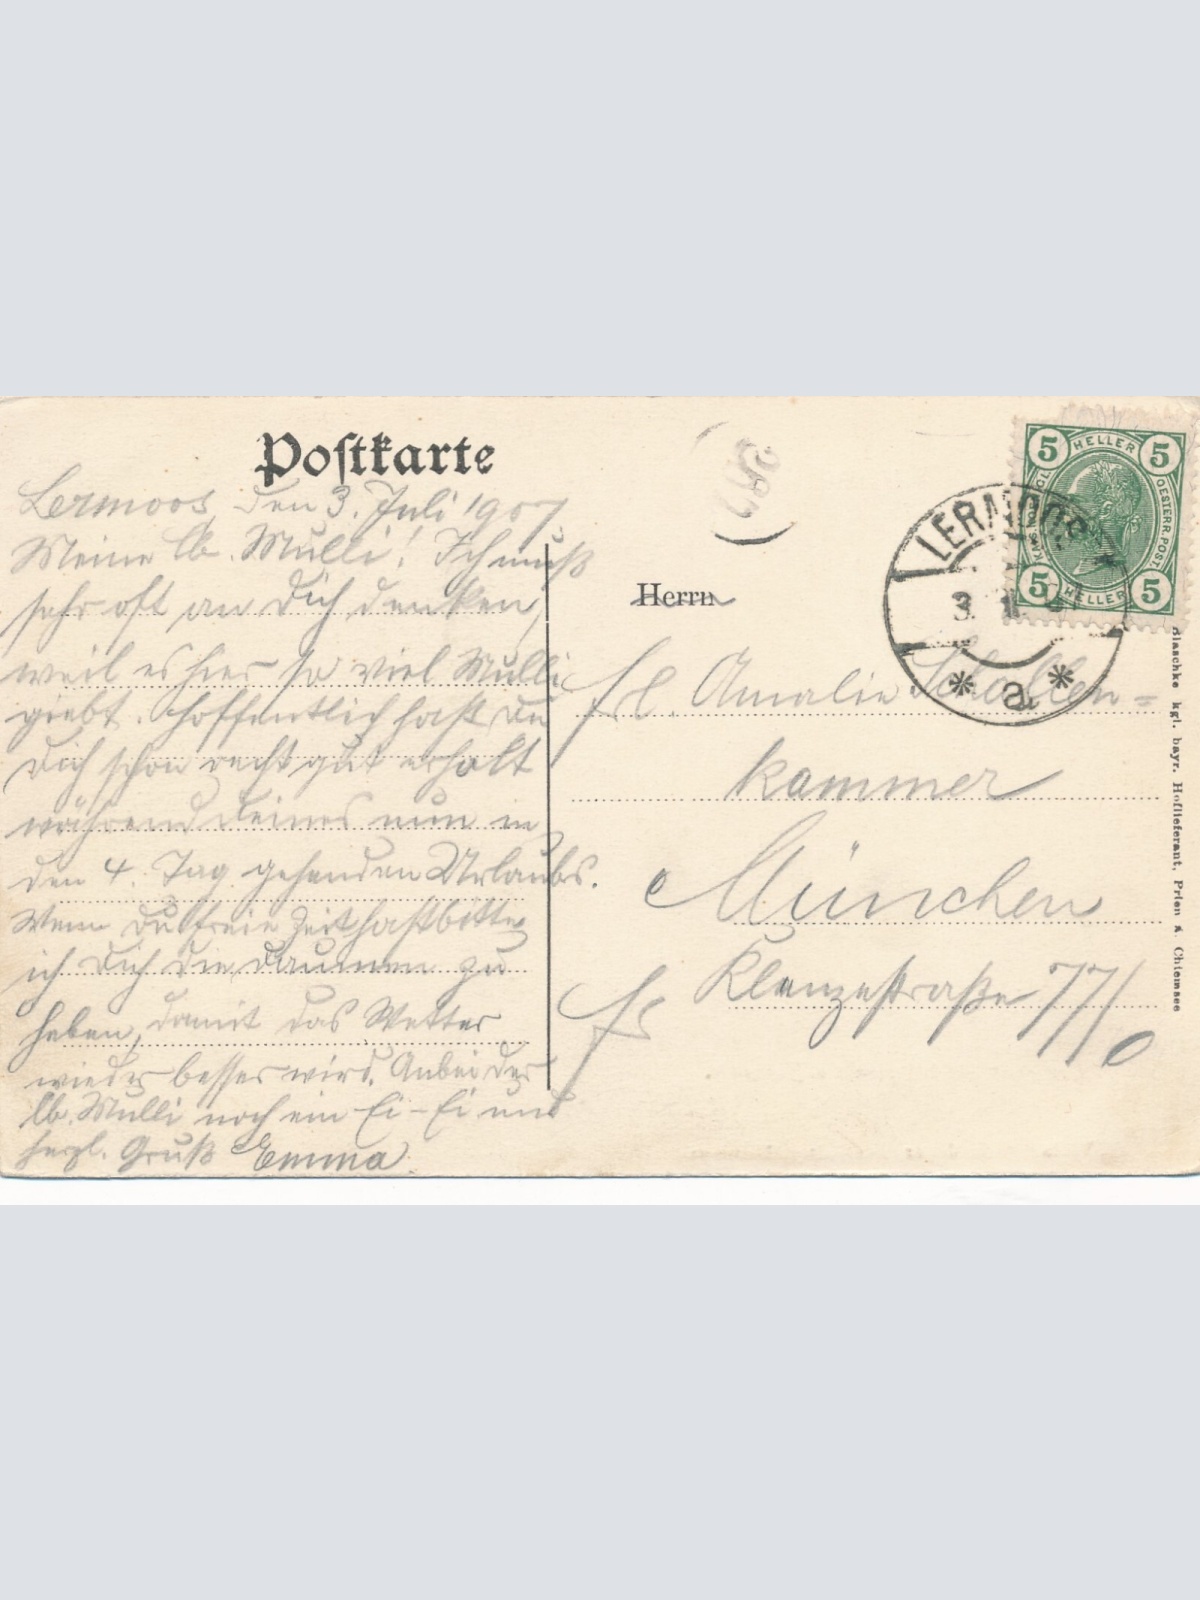 Postkarte
Lermoos, den 3. Juli 1907.
Meine lb. Mulli! Ich muß
sehr oft an Dich denken,
weil es hier so viel Mulli
giebt. Hoffentlich hast Du
Dich schon recht gut erholt
während Deines nun in
den 4. Tag gehenden Urlaubs.
Wenn Du freie Zeit hast bitte
ich Dich die Daumen zu
heben, damit das Wetter
wieder besser wird. Anbei der
lb. Mulli noch ein Ei-Ei und
herzl. Gruß Emma.
5 HELLER 5
KAIS. KÖNIGL. OESTERR. POST
5 HELLER 5
LERMOOS
3.
* a *
Herrn
Frl. Amalie Schollen=
kammer
München
Klenzestraße 77/0
Blaschke kgl. bayr. Hoflieferant, Prien a. Chiemsee